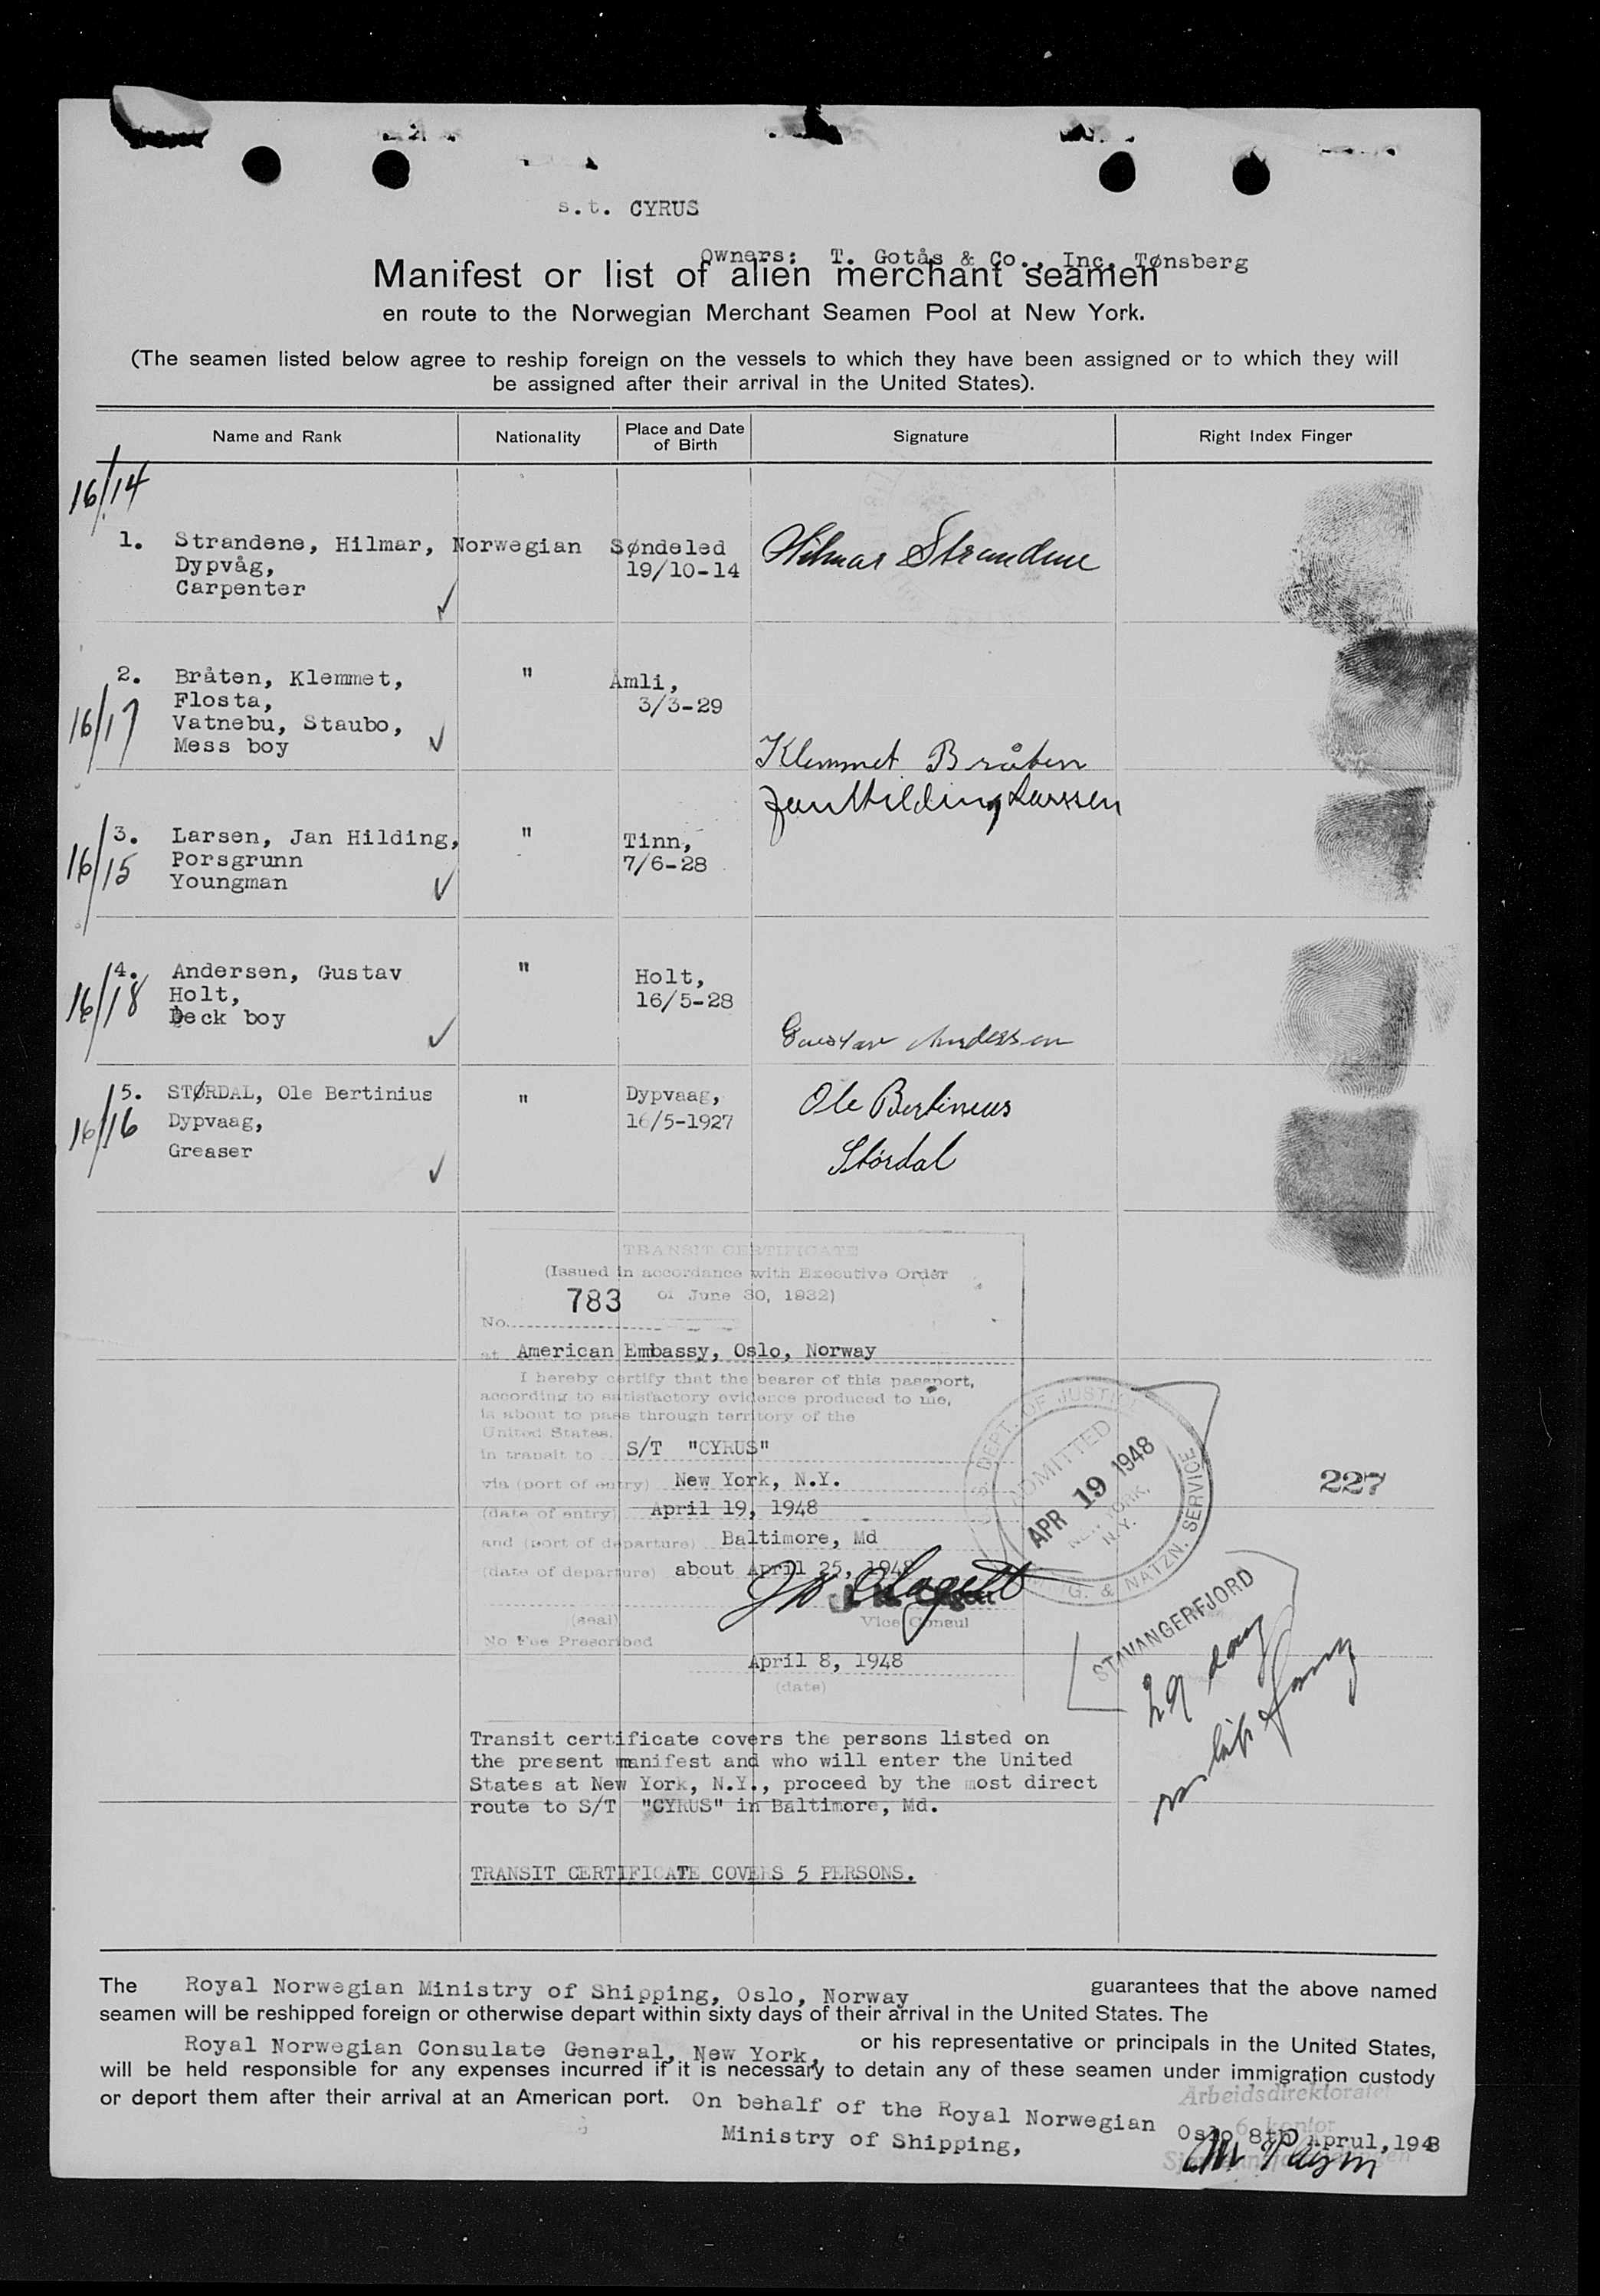 s.t. CYRUS
Owners: T. Gotås & Co., Inc. Tønsberg
Manifest or list of alien merchant seamen
en route to the Norwegian Merchant Seamen Pool at New York.
(The seamen listed below agree to reship foreign on the vessels to which they have been assigned or to which they will
be assigned after their arrival in the United States).
Name and Rank Nationality Place and Date of Birth Signature Right Index Finger
16/14
1. Strandene, Hilmar, Norwegian Søndeled Hilmar Strandene
Dypvåg, 19/10-14
Carpenter
2. Bråten, Klemmet, " Åmli,
Flosta, 3/3-29
16/17 Vatnebu, Staubo,
Mess boy
Klemmet Bråten
Jan Hilding Larssen
3. Larsen, Jan Hilding, " Tinn,
16/15 Porsgrunn 7/6-28
Youngman
4. Andersen, Gustav " Holt,
16/18 Holt, 16/5-28
Deck boy
Gustav Anderssen
5. STØRDAL, Ole Bertinius " Dypvaag, Ole Bertinius
16/16 Dypvaag, 16/5-1927
Greaser Størdal
TRANSIT CERTIFICATE
(Issued in accordance with Executive Order
of June 30, 1932)
No. 783
at American Embassy, Oslo, Norway
I hereby certify that the bearer of this passport,
according to satisfactory evidence produced to me,
is about to pass through territory of the
United States.
in transit to S/T "CYRUS"
via (port of entry) New York, N.Y.
(date of entry) April 19, 1948
and (port of departure) Baltimore, Md
(date of departure) about April 25, 1948
(seal) Vice Consul
No Fee Prescribed
April 8, 1948
(date)
U.S. DEPT. OF JUSTICE
ADMITTED
APR 19 1948
NEW YORK,
N.Y.
IMMIG. & NATZN. SERVICE
227
STAVANGERFJORD
29 day
Transit certificate covers the persons listed on
the present manifest and who will enter the United
States at New York, N.Y., proceed by the most direct
route to S/T "CYRUS" in Baltimore, Md.
TRANSIT CERTIFICATE COVERS 5 PERSONS.
The Royal Norwegian Ministry of Shipping, Oslo, Norway guarantees that the above named
seamen will be reshipped foreign or otherwise depart within sixty days of their arrival in the United States. The
Royal Norwegian Consulate General, New York, or his representative or principals in the United States,
will be held responsible for any expenses incurred if it is necessary to detain any of these seamen under immigration custody
or deport them after their arrival at an American port. On behalf of the Royal Norwegian
Ministry of Shipping,
Arbeidsdirektoratet
6. kontor
Oslo 8th Aprul, 1948